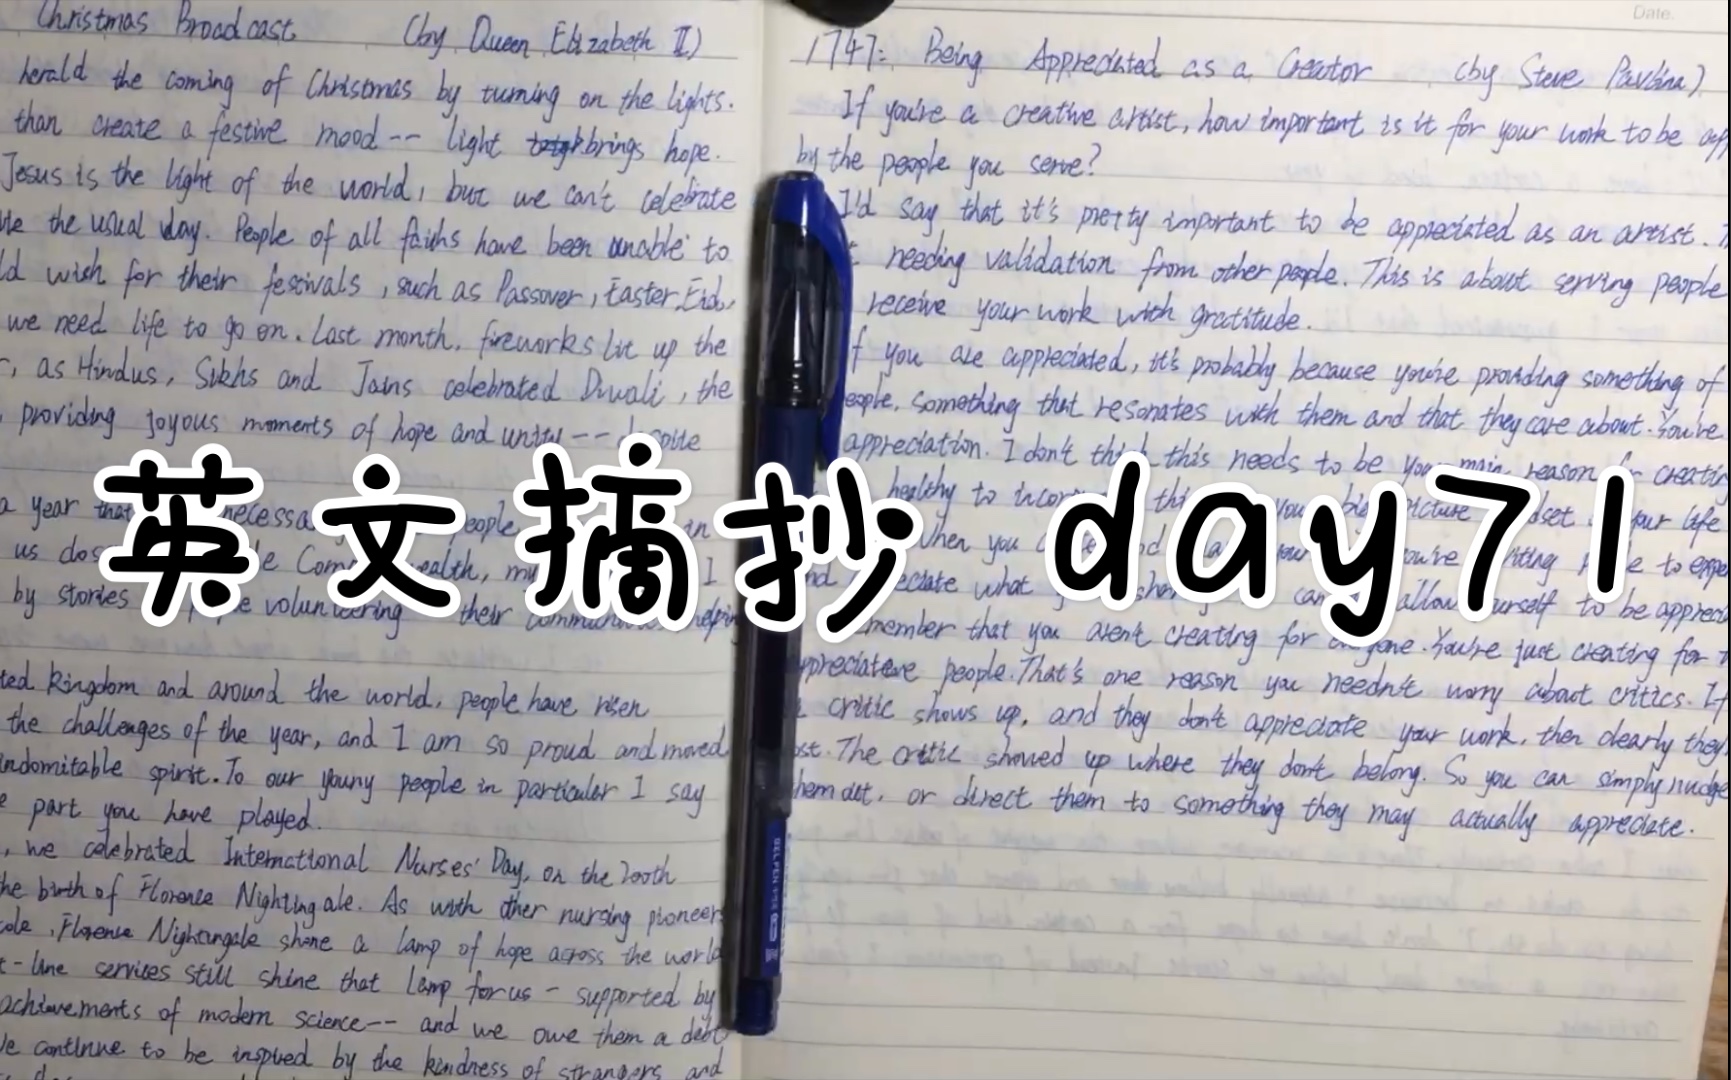 Christmas Broadcast (by Queen Elizabeth II)
herald the coming of Christmas by turning on the lights.
than create a festive mood -- light brings hope.
Jesus is the light of the world, but we can't celebrate
the usual way. People of all faiths have been unable to
wish for their festivals, such as Passover, Easter, Eid,
we need life to go on. Last month, fireworks lit up the
, as Hindus, Sikhs and Jains celebrated Diwali, the
providing joyous moments of hope and unity -- despite
a year that necessa people in
us Com ealth, my I
by stories volunteering their helping
ted kingdom and around the world, people have risen
the challenges of the year, and I am so proud and moved
indomitable spirit. To our young people in particular I say
part you have played.
, we celebrated International Nurses' Day, on the 200th
the birth of Florence Nightingale. As with other nursing pioneers
cole, Florence Nightingale shone a lamp of hope across the world
t-line services still shine that lamp for us - supported by
achievements of modern science -- and we owe them a debt
We continue to be inspired by the kindness of strangers and
Date.
1747: Being Appreciated as a Creator (by Steve Pavlina)
If you're a creative artist, how important is it for your work to be app
by the people you serve?
I'd say that it's pretty important to be appreciated as an artist.
needing validation from other people. This is about serving people
receive your work with gratitude.
f you are appreciated, it's probably because you're providing something of
eople, something that resonates with them and that they care about. You're
appreciation. I don't think this needs to be your main reason for creating
healthy to incor this you big picture dset your life
When you your you're people to expe
ciate what can allow urself to be apprec
member that you aren't creating for one. You're just creating for
appreciative people. That's one reason you needn't worry about critics. If
a critic shows up, and they don't appreciate your work, then clearly they
ost. The critic showed up where they don't belong. So you can simply nudge
them out, or direct them to something they may actually appreciate.
英文摘抄 day71
GEL PEN